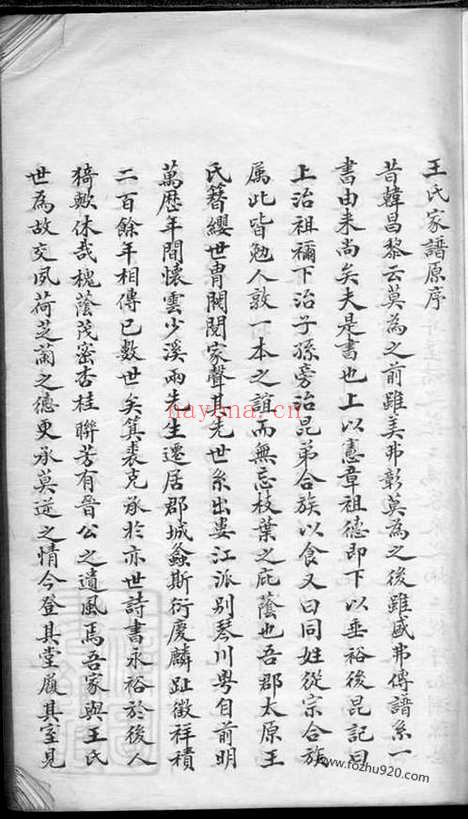 王氏家譜原序
昔韓昌黎云莫為之前雖美弗彰莫為之後雖盛弗傳譜系一
書由来尚矣夫是書也上以憲章祖德即下以垂裕後昆記曰
上治祖禰下治子孫旁治昆弟合族以食又曰同姓從宗合族
属此皆勉人敦一本之誼而無忘枝葉之庇蔭也吾郡太原王
氏簪纓世冑閥閱家聲其先世系出婁江派別琴川粤自前明
萬歷年間懷雲少溪兩先生遷居郡城螽斯衍慶麟趾徵祥積
二百餘年相傳已數世矣箕裘克承於亦世詩書永裕於後人
猗歟休哉槐蔭茂密杏桂聯芳有晉公之遺風焉吾家與王氏
世為故交夙荷芝蘭之德更承莫逆之情今登其堂履其室見
hayama.cn
www.fozhu920.com